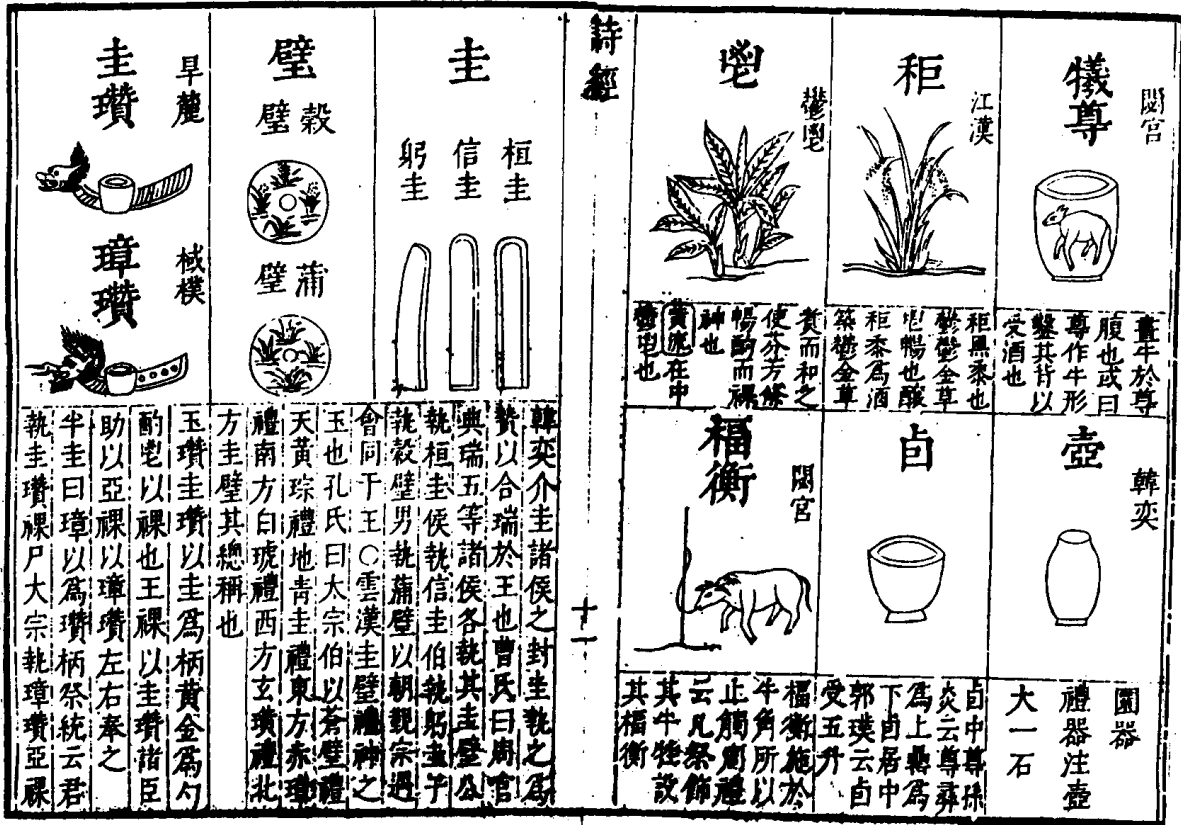 閟宮
犧尊
畫牛於尊
腹也或曰
尊作牛形
鑿其背以
受酒也
江漢
秬
秬黑黍也
鬱鬱金草
鬯暢也釀
秬黍爲酒
築鬱金草
鬱鬯
鬯
煑而和之
使芬芳條
暢酌而祼
神也
黃流在中
鬱鬯也
韓奕
壺
圜器
禮器注壺
大一石
卣
卣中尊孫
炎云尊彝
爲上罍爲
下卣居中
郭璞云卣
受五升
閟宮
楅衡
楅衡施於
牛角所以
止觸周禮
云凡祭飾
其牛牲設
其楅衡
詩經
十一
圭
桓圭
信圭
躬圭
韓奕介圭諸侯之封圭執之爲
贄以合瑞於王也曹氏曰周官
典瑞五等諸侯各執其圭璧公
執桓圭侯執信圭伯執躬圭子
執穀璧男執蒲璧以朝覲宗遇
會同于王○雲漢圭璧禮神之
玉也孔氏曰大宗伯以蒼璧禮
天黃琮禮地青圭禮東方赤璋
禮南方白琥禮西方玄璜禮北
方圭璧其總稱也
璧
穀璧
蒲璧
旱麓
圭瓚
棫樸
璋瓚
玉瓚圭瓚以圭爲柄黃金爲勺
酌鬯以祼也王祼以圭瓚諸臣
助以亞祼以璋瓚左右奉之
半圭曰璋以爲瓚柄祭統云君
執圭瓚祼尸大宗執璋瓚亞祼